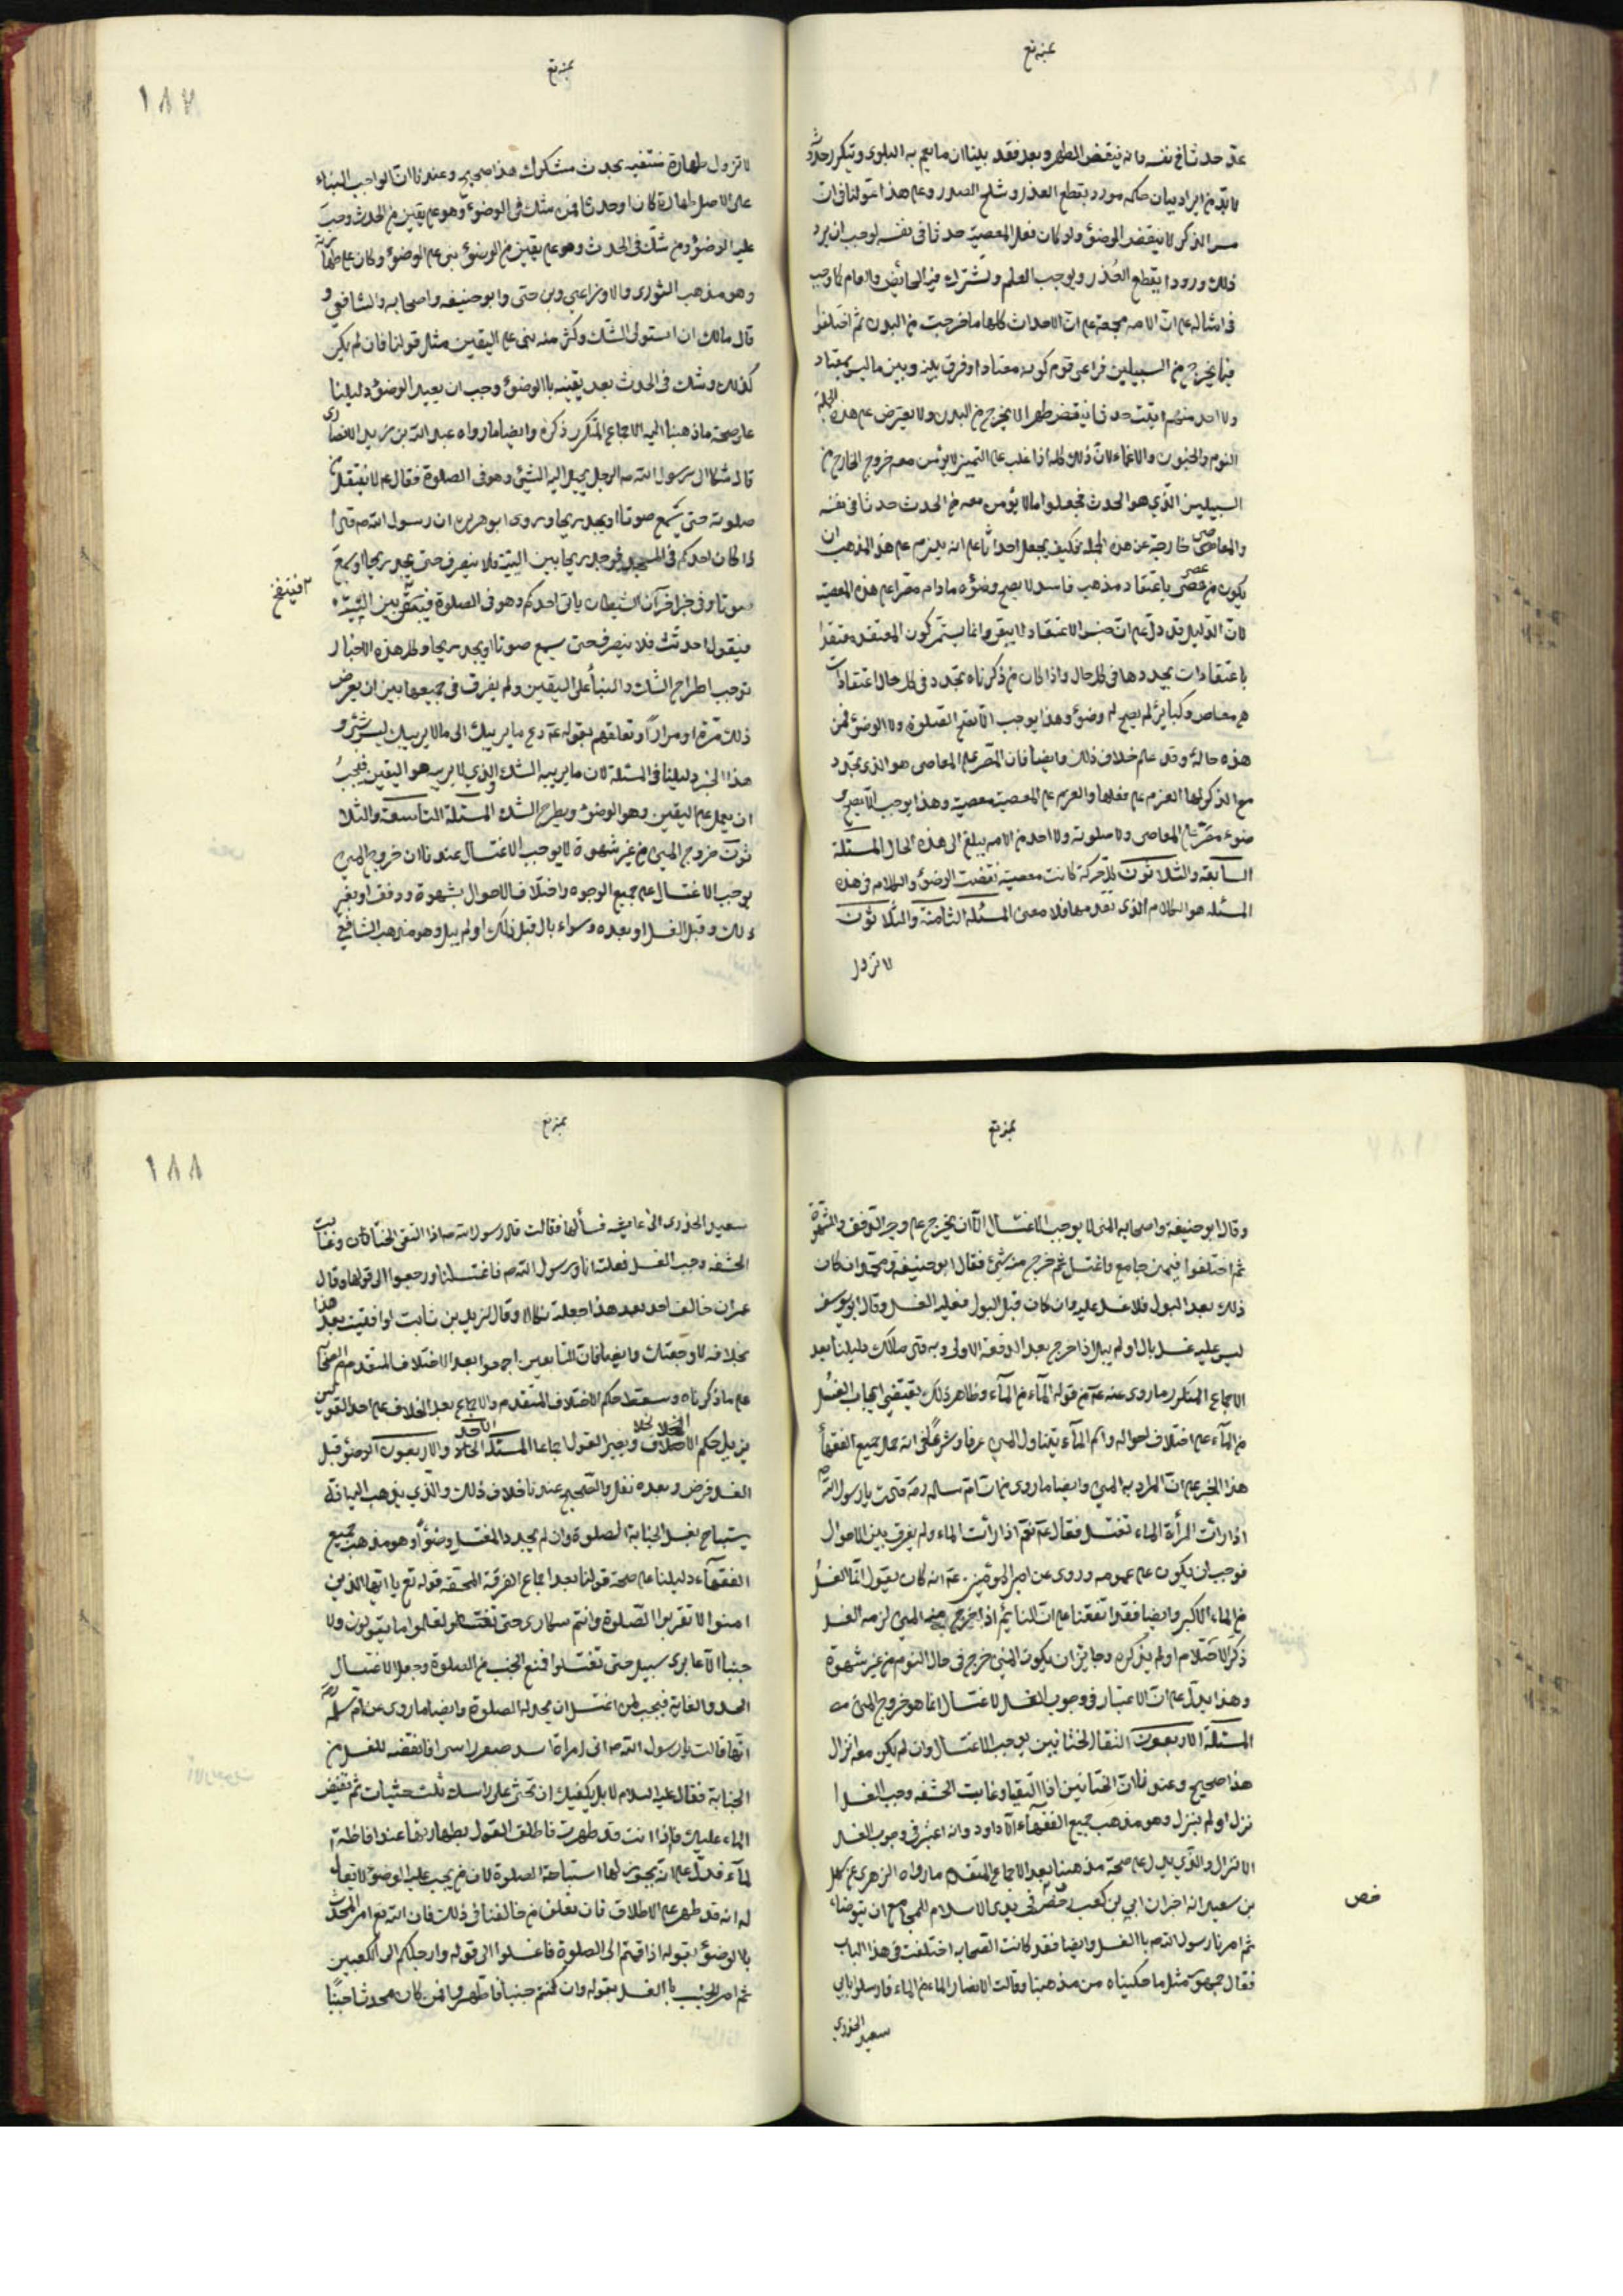 عبه تع
عد حدثا في نفسه وانه ينقض الطهر وبعد فقد بينا ان ما يعم به البلوى ويتكرر حدوثه
لا بد من ايراد بيان حكمه مورد يقطع العذر ويثلج الصدور وعلى هذا عولنا في ان
مس الذكر لا ينقض الوضوء ولو كان فعل المعصية حدثا في نفسه لوجب ان يرد
ذلك ورودا يقطع العذر ويوجب العلم ويشترك فيه الخاص والعام كما وجب
في امثاله على ان الامه مجمعة على ان الاحداث كلها ما خرجت من البدن ثم اختلفوا
فيما يخرج من السبيلين فراعى قوم كونه معتادا وفرق بينه وبين ما ليس بمعتاد
ولا احد منهم اثبت حدثا ينقض طهرا لا يخرج من البدن ولا يعترض على هذه الجملة
النوم والجنون والاغماء لان ذلك كله اذا غلب على التميز لا يؤمن معه خروج الخارج من
السبيلين الذي هو الحدث فجعلوا ما لا يؤمن معه من الحدث حدثا في نفسه
والمعاصى خارجة عن هذه الجمله فكيف يجعل احداثا على انه يلزم على هذ المذهب ان
يكون من عصى باعتقاد مذهب فاسد لا يصح وضؤه ما دام مصرا على هذه المعصية
لان الدليل قد دل على ان جنس الاعتقاد لا يبقى وانما يستمر كون المعتقد معتقدا
باعتقادات يجددها في كل حال واذا كان من ذكرناه يتجدد في كل حال اعتقادات
هي معاص وكبائر لم يصح له وضوء وهذا يوجب الا تقع الصلوة ولا الوضوء ممن
هذه حاله وقد علم خلاف ذلك وايضا فان المصر على المعاصى هو الذى يتجدد
مع الذكر لها العزم على فعلها والعزم على المعصية معصية وهذا يوجب الا يصح و
ضوء مصر على المعاصى ولا صلوته ولا احد من الامه يبلغ الى هذه الحال المسئلة
السابعة والثلاثون كل حركة كانت معصية نقضت الوضوء والكلام في هذه
المسئله هو الكلام الذى بعدمها فلا معنى المسئلة الثامنة والثلاثون
لا تزول
عبه تع
١٨٧
لا تزول طهارة متيقنة بحدث مشكوك هذا صحيح وعندنا ان الواجب البناء
على الاصل طهارة كان او حدثا فمن شك في الوضوء وهو على يقين من الحدث وجب
عليه الوضوء ومن شك في الحدث وهو على يقين من الوضوء بنى على الوضوء وكان على طهارته
وهو مذهب الثورى والاوزاعي وبن حتى وابو حنيفه واصحابه والشافعي و
قال مالك ان استولى الشك وكثر منه بنى على اليقين مثل قولنا فان لم يكن
كذلك وشك في الحدث بعد يقينه بالوضوء وجب ان يعيد الوضوء دليلنا
على صحة ما ذهبنا اليه الاجماع المتكرر ذكره وايضا ما رواه عبد الله بن زيد الانصارى
قال شكا الى رسول الله ص الرجل يخيل اليه الشيء وهو في الصلوة فقال ع لا ينفتل من
صلوته حتى يسمع صوتا او يجد ريحا وروى ابو هريره ان رسول الله ص قال
اذا كان احدكم في المسجد فوجد ريحا بين اليتية فلا ينصرف حتى يجد ريحا او يسمع
صوتا وفي خبر اخر ان الشيطان ياتى احدكم وهو في الصلوة فينفخ بين اليتيه
٢ فينفخ
فيقول احدثت فلا ينصرف حتى يسمع صوتا او يجد ريحا وكل هذه الاخبار
توجب اطراح الشك والبنأ على اليقين ولم يفرق في جميعها بين ان يعرض
ذلك مرة او مرارا وتعلقهم بقوله ع دع ما يريبك الى ما لا يريبك ليس بشئ و
هذا الخبر دليلنا في المسئلة لان ما يريبه الشك والذي لا يريبه هو اليقين فيجب
ان يعمل على اليقين وهو الوضوء ويطرح الشك المسئلة التاسعة والثلا
ثون خروج المني من غير شهوة لا يوجب الاغتسال عندنا ان خروج المني
يوجب الاغتسال على جميع الوجوه واختلاف الاحوال بشهوة ودفق او بغير
ذلك وقبل الغسل او بعده وسواء بال قبل ذلك او لم يبل وهو مذهب الشافعي
عبه تع
وقال ابو حنيفة واصحابه المنى لا يوجب الاغتسال الا ان يخرج على وجه الدفق والشهوة
ثم اختلفوا فيمن جامع واغتسل ثم خرج منه شئ فقال ابو حنيفة ومحمد ان كان
ذلك بعد البول فلا غسل عليه وان كان قبل البول فعليه الغسل وقال ابو يوسف
ليس عليه غسل بال او لم يبل اذا خرج بعد الدفقة الاولى وبه قال مالك دليلنا بعد
الاجماع المتكرر ما روى عنه ع من قوله المآء من المآء وظاهر ذلك يقتضي ايجاب الغسل
من المآء على اختلاف احواله واسم المآء يتناول المني عرفا وشرعا لانه حمل جميع الفقهأ
هذا الخبر على ان المراد به المني وايضا ما روى
اذا رأت المرأة الماء تغتسل فقال ع نعم اذا رأت الماء ولم يفرق بين الاحوال
فوجب ان يكون على عمومه وروى عن امير المومنين ع انه كان يقول انما الغسل
من الماء الاكبر وايضا فقد اتفقنا على ان النائم اذا خرج منه المني لزمه الغسل
ذكر الاحتلام او لم يذكره وجايز ان يكون المني خرج في حال النوم من غير شهوة
وهذا يدل على ان الاعتبار في وجوب الغسل لاغتسال انما هو خروج المنى
المسئلة الاربعون التقا الختانين يوجب الاغتسال وان لم يكن معه انزال
هذا صحيح وعندنا ان الختانين اذا التقيا وغابت الحشفه وجب الغسل ا
نزل او لم ينزل وهو مذهب جميع الفقهآء الا داود وانه اعتبر في وجوب الغسل
الانزال والذي يدل على صحة مذهبنا بعد الاجماع المتقدم ما رواه الزهرى عن سهل
بن سعيد انه اخبر ان ابي بن كعب رخص في بدى الاسلام للمجامع ان يتوضأ
خص
ثم امرنا رسول الله ص بالغسل وايضا فقد كانت الصحابه اختلفت في هذا الباب
فقال جمهور مثل ما حكيناه من مذهبنا وقالت الانصار الماء من الماء فارسلوا بابي
سعيد الخدرى
عبه تع
١٨٨
سعيد الخدرى الى عايشه فسألها فقالت قال رسول الله ص اذا التقى الختانان وغابت
الحشفه وجب الغسل فعلته انا ورسول الله ص فاغتسلنا ورجعوا الى قولها وقال
عمران خالف احد بعد هذا جعلته نكالا وقال لزيد بن ثابت لو افتيت بعد هذا
بخلافه لاوجعتك وايضا فان التابعين اجمعوا بعد الاختلاف المتقدم من الصحابه
على ما ذكرناه وسقط حكم الاختلاف المتقدم والاجماع بعد الخلاف على احد القولين
يزيل حكم الاختلاف ويصير القول اجماعا المسئلة الحادى والاربعون الوضوء قبل
الغسل فرض وبعده نفل والصحيح عندنا خلاف ذلك والذي يذهب اليه انه
يستباح بغسل الجنابة الصلوة وان لم يجدد المغتسل وضوءا وهو مذهب جميع
الفقهآء دليلنا على صحة قولنا بعد اجماع الفرقة المحقة قوله تع يا ايها الذين
امنوا لا تقربوا الصلوة وانتم سكارى حتى تعلموا ما تقولون ولا
جنبا الا عابرى سبيل حتى تغتسلوا فمنع الجنب من الصلوة وجعل الاغتسال
الحد والغاية فيجب لمن اغتسل ان يحل له الصلوة وايضا ما روى عن ام سلمه
انها قالت يا رسول الله ص انى امراة اشد ضفر راسى افانقضه للغسل من
الجنابة فقال عليه السلام لا بل يكفيك ان تحثى على راسك ثلث حثيات ثم تفيض
الماء عليك فاذا انت قد طهرت فاطلق القول بطهارتها عند افاضة ا
لمآء فدل على انه يجوز لها استباحة الصلوة لان من يجب عليه الوضوء لا يقال
له انه قد طهر على الاطلاق فان تعلق من خالفنا في ذلك فان الله تع امر المحدث
بالوضوء بقوله اذا قمتم الى الصلوة فاغسلوا الى قوله وارجلكم الى الكعبين
ثم امر الجنب بالغسل بقوله وان كنتم جنبا فاطهروا فمن كان محدثا جنبا